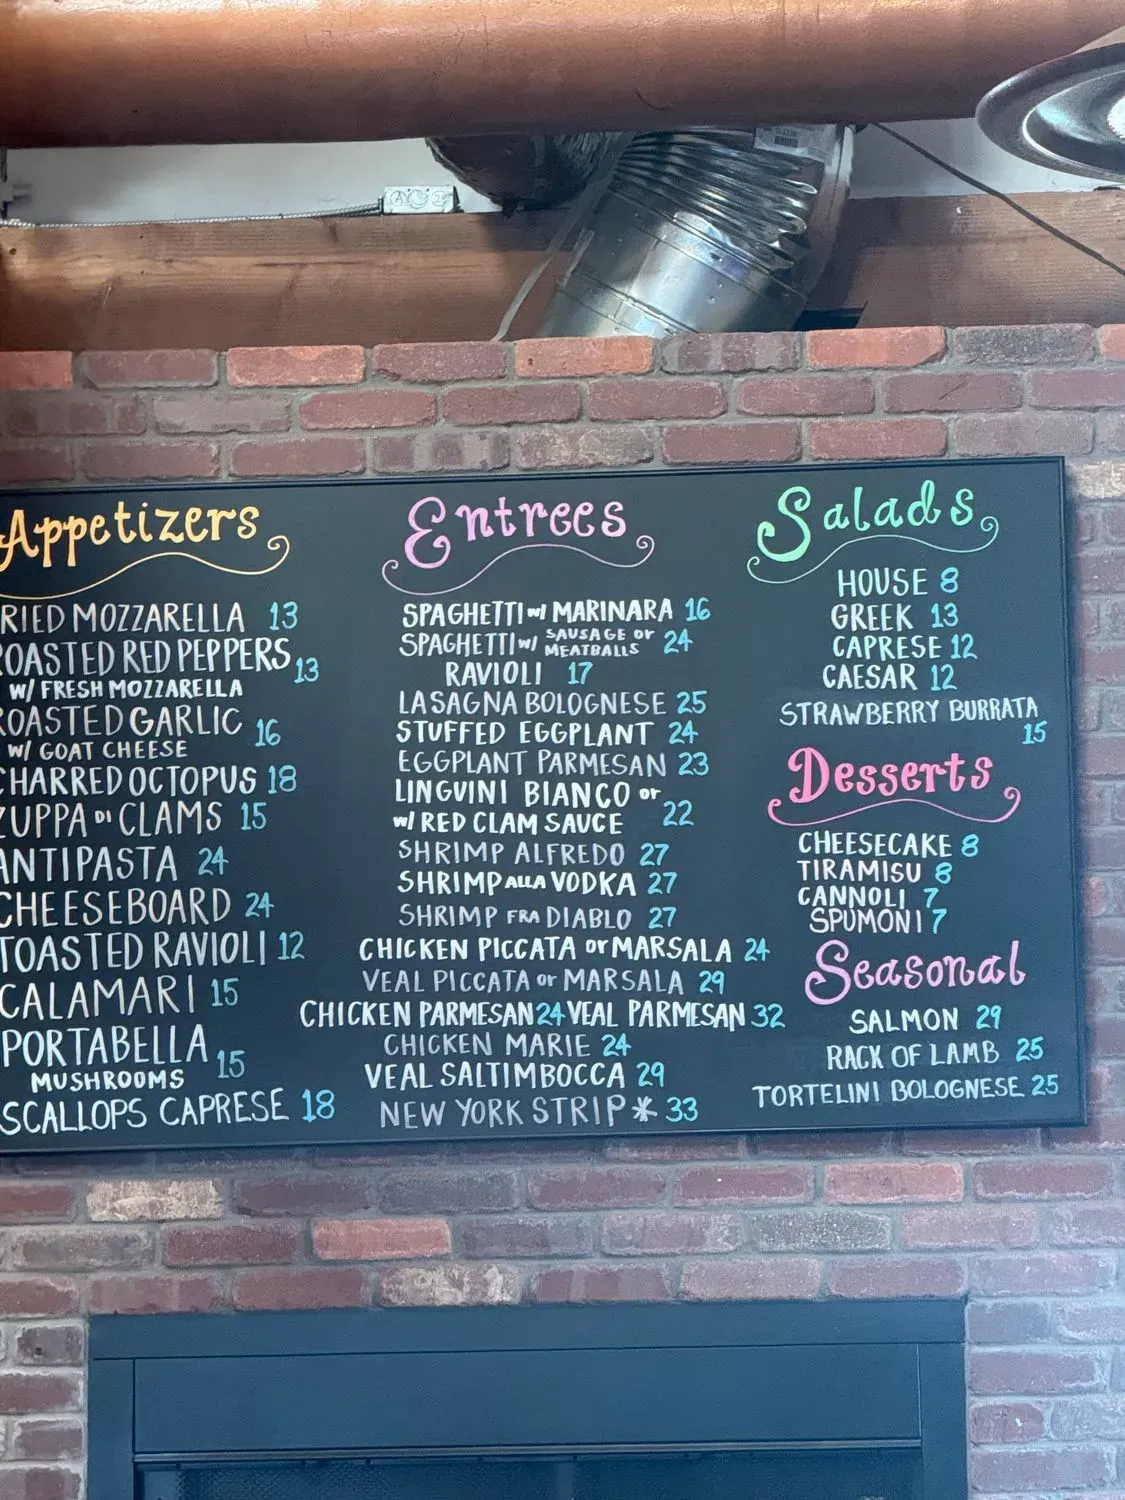 Appetizers
RIED MOZZARELLA 13
ROASTED RED PEPPERS 13
W/ FRESH MOZZARELLA
ROASTED GARLIC 16
W/ GOAT CHEESE
CHARRED OCTOPUS 18
ZUPPA DI CLAMS 15
ANTIPASTA 24
CHEESEBOARD 24
TOASTED RAVIOLI 12
CALAMARI 15
PORTABELLA 15
MUSHROOMS
SCALLOPS CAPRESE 18
Entrees
SPAGHETTI w/ MARINARA 16
SPAGHETTI w/ SAUSAGE or 24
MEATBALLS
RAVIOLI 17
LASAGNA BOLOGNESE 25
STUFFED EGGPLANT 24
EGGPLANT PARMESAN 23
LINGUINI BIANCO or 22
w/ RED CLAM SAUCE
SHRIMP ALFREDO 27
SHRIMP ALLA VODKA 27
SHRIMP FRA DIABLO 27
CHICKEN PICCATA or MARSALA 24
VEAL PICCATA or MARSALA 29
CHICKEN PARMESAN 24 VEAL PARMESAN 32
CHICKEN MARIE 24
VEAL SALTIMBOCCA 29
NEW YORK STRIP * 33
Salads
HOUSE 8
GREEK 13
CAPRESE 12
CAESAR 12
STRAWBERRY BURRATA
15
Desserts
CHEESECAKE 8
TIRAMISU 8
CANNOLI 7
SPUMONI 7
Seasonal
SALMON 29
RACK OF LAMB 25
TORTELINI BOLOGNESE 25